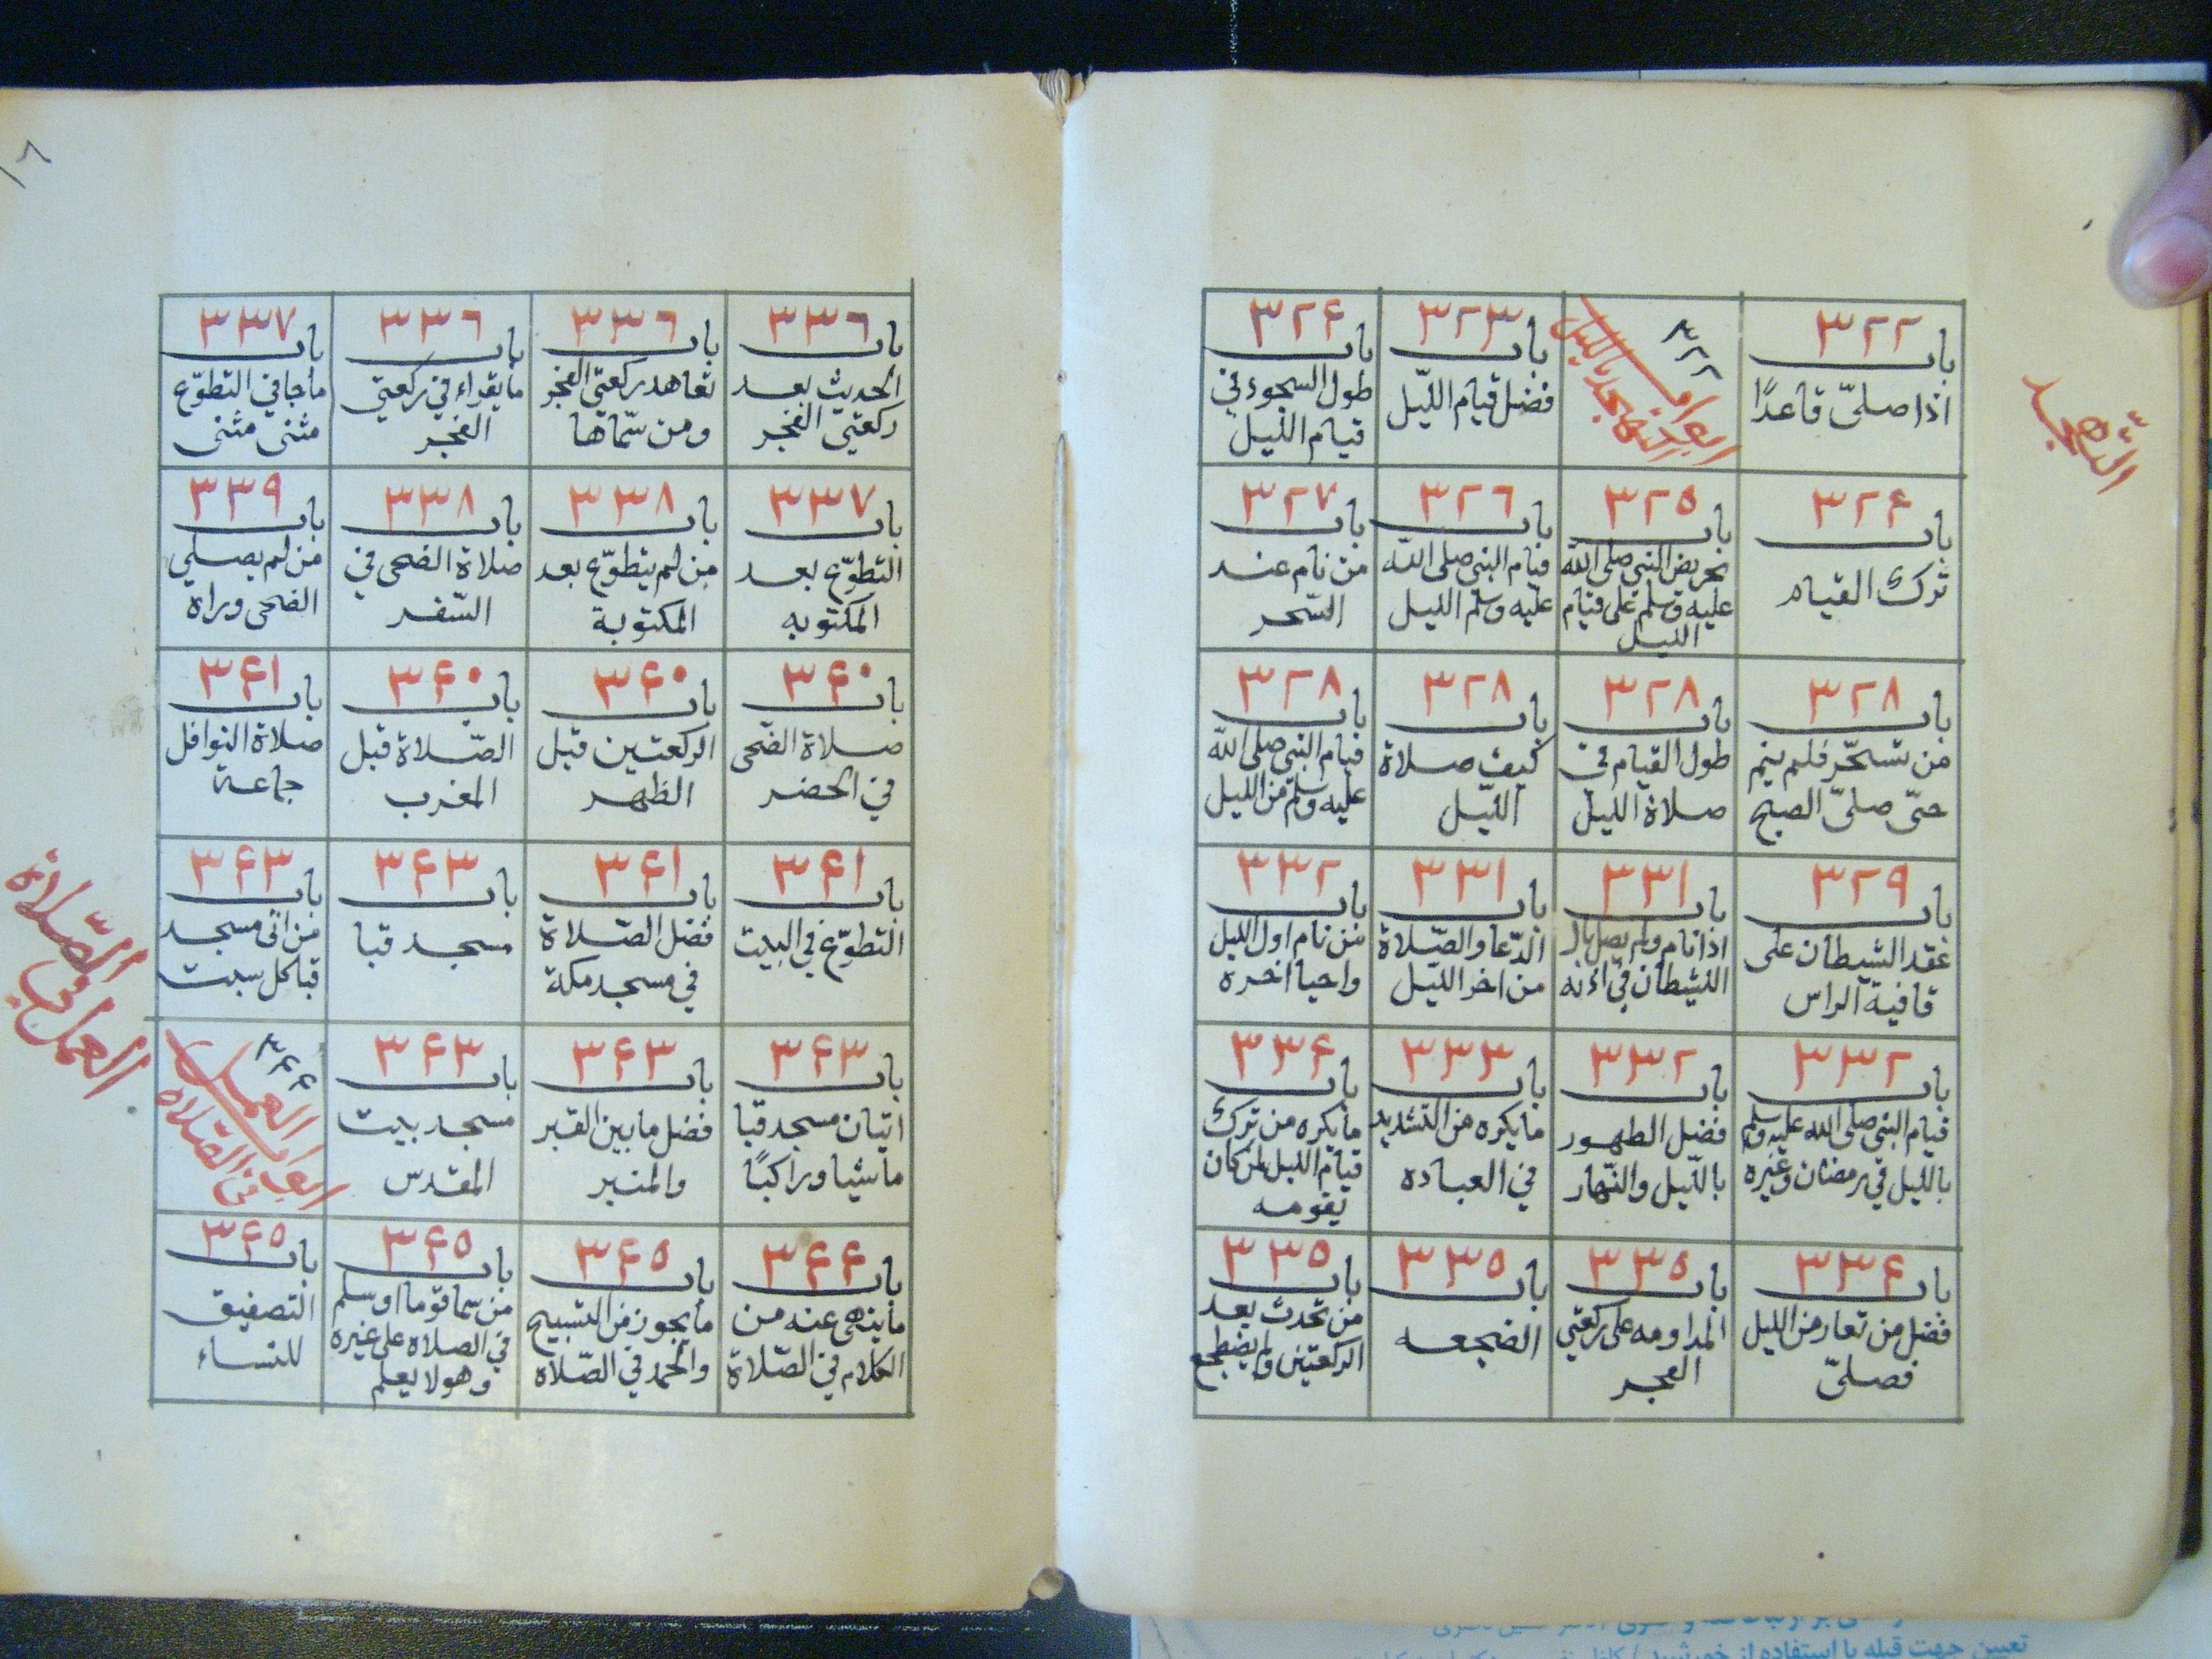 التهجد
٣٢٢
باب
اذا صلىّ قاعدًا
٣٢٢
ابواب
التهجد بالليل
٣٢٣
باب
فضل قيام اللّيل
٣٢۴
باب
طول السجود في
قيام الليل
٣٢۴
باب
ترك القيام
٣٢٥
باب
تحريض النبي صلى الله
عليه وسلم على قيام
الليل
٣٢٦
باب
قيام النبي صلى الله
عليه وسلم الليل
٣٢٧
باب
من نام عند
السّحر
٣٢٨
باب
من تسحّر فلم ينم
حتّى صلىّ الصبح
٣٢٨
باب
طول القيام في
صلاة الليل
٣٢٨
باب
كيف صلاة
اللّيل
٣٢٨
باب
قيام النبي صلى الله
عليه وسلم من الليل
٣٢٩
باب
عقد الشيطان على
قافية الراس
٣٣١
باب
اذا نام ولم يصل بال
الشيطان في اذنه
٣٣١
باب
الدّعا والصّلاة
من اخر اللّيل
٣٣٢
باب
من نام اول الليل
واحيا اخره
٣٣٢
باب
قيام النبي صلى الله عليه وسلم
بالليل في رمضان وغيره
٣٣٢
باب
فضل الطهور
باللّيل والنّهار
٣٣٣
باب
ما يكره من التشديد
في العباده
٣٣۴
باب
ما يكره من ترك
قيام الليل لمن كان
يقومه
٣٣۴
باب
فضل من تعار من الليل
فصلىّ
٣٣٥
باب
المداومه على ركعتي
الفجر
٣٣٥
باب
الضجعه
٣٣٥
باب
من تحدث بعد
الركعتين ولم يضطجع
١٨
٣٣٦
باب
الحديث بعد
ركعتي الفجر
٣٣٦
باب
تعاهد ركعتي الفجر
ومن سّماها
٣٣٦
باب
ما يقراء في ركعتي
الفجر
٣٣٧
باب
ما جا في التطوّع
مثنى مثنى
٣٣٧
باب
التطوّع بعد
المكتوبه
٣٣٨
باب
من لم يتطوّع بعد
المكتوبة
٣٣٨
باب
صلاة الضحى في
السّفر
٣٣٩
باب
من لم يصلي
الضحى وراه
٣۴٠
باب
صلاة الضّحى
في الحضر
٣۴٠
باب
الركعتين قبل
الظهر
٣۴٠
باب
الصّلاة قبل
المغرب
٣۴١
باب
صلاة النوافل
جماعة
٣۴١
باب
التطوّع في البيت
٣۴١
باب
فضل الصّلاة
في مسجد مكة
٣۴٣
باب
مسجد قبا
٣۴٣
باب
من اتى مسجد
قبا كل سبت
٣۴٣
باب
اتيان مسجد قبا
ماشيا وراكبًا
٣۴٣
باب
فضل ما بين القبر
والمنبر
٣۴٣
باب
مسجد بيت
المقدس
٣۴۴
ابواب العمل
في الصّلاة
٣۴۴
باب
ما ينهى عنه من
الكلام في الصّلاة
٣۴٥
باب
ما يجوز من التسبيح
والحمد في الصّلاة
٣۴٥
باب
من سما قوما او سلم
في الصلاة على غيره
وهو لا يعلم
٣۴٥
باب
التصفيق
للنساء
العمل في الصّلاة
تعيين جهت قبله با استفاده از خورشيد